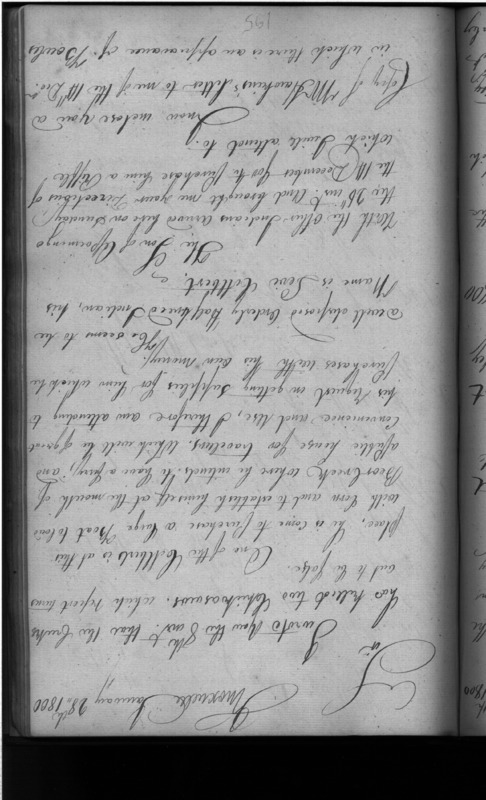 Knoxville January 28th 1800
Sir
I wrote you the 8th inst. that the Creeks
has killed two Chickasaws. which report turns
out to be false.
One of the Colberts is at this
place, he is come to purchase a large Boat to load
with Corn and to establish himself at the mouth of
Bear Creek where he intends to have a ferry, and
a public house for travellers. Which will be of great
convenience and Use, I therefore am attending to
his request in getting supplies for him which he
purchases with his own money.
He seems to be
a well disposed orderly Half breed Indian, his
Name is Levi Colbert.
The Son of Opoamingo
with the other Indians arived here on Sunday
the 26th inst. And brought me your Directions of
the 11th December for to purchase him a Rifle
which I will attend to.
I now inclose you a
Copy of Mr. Hawkins's letter to me of the 11th Dec.
in which there is an appearance of Bowles
195